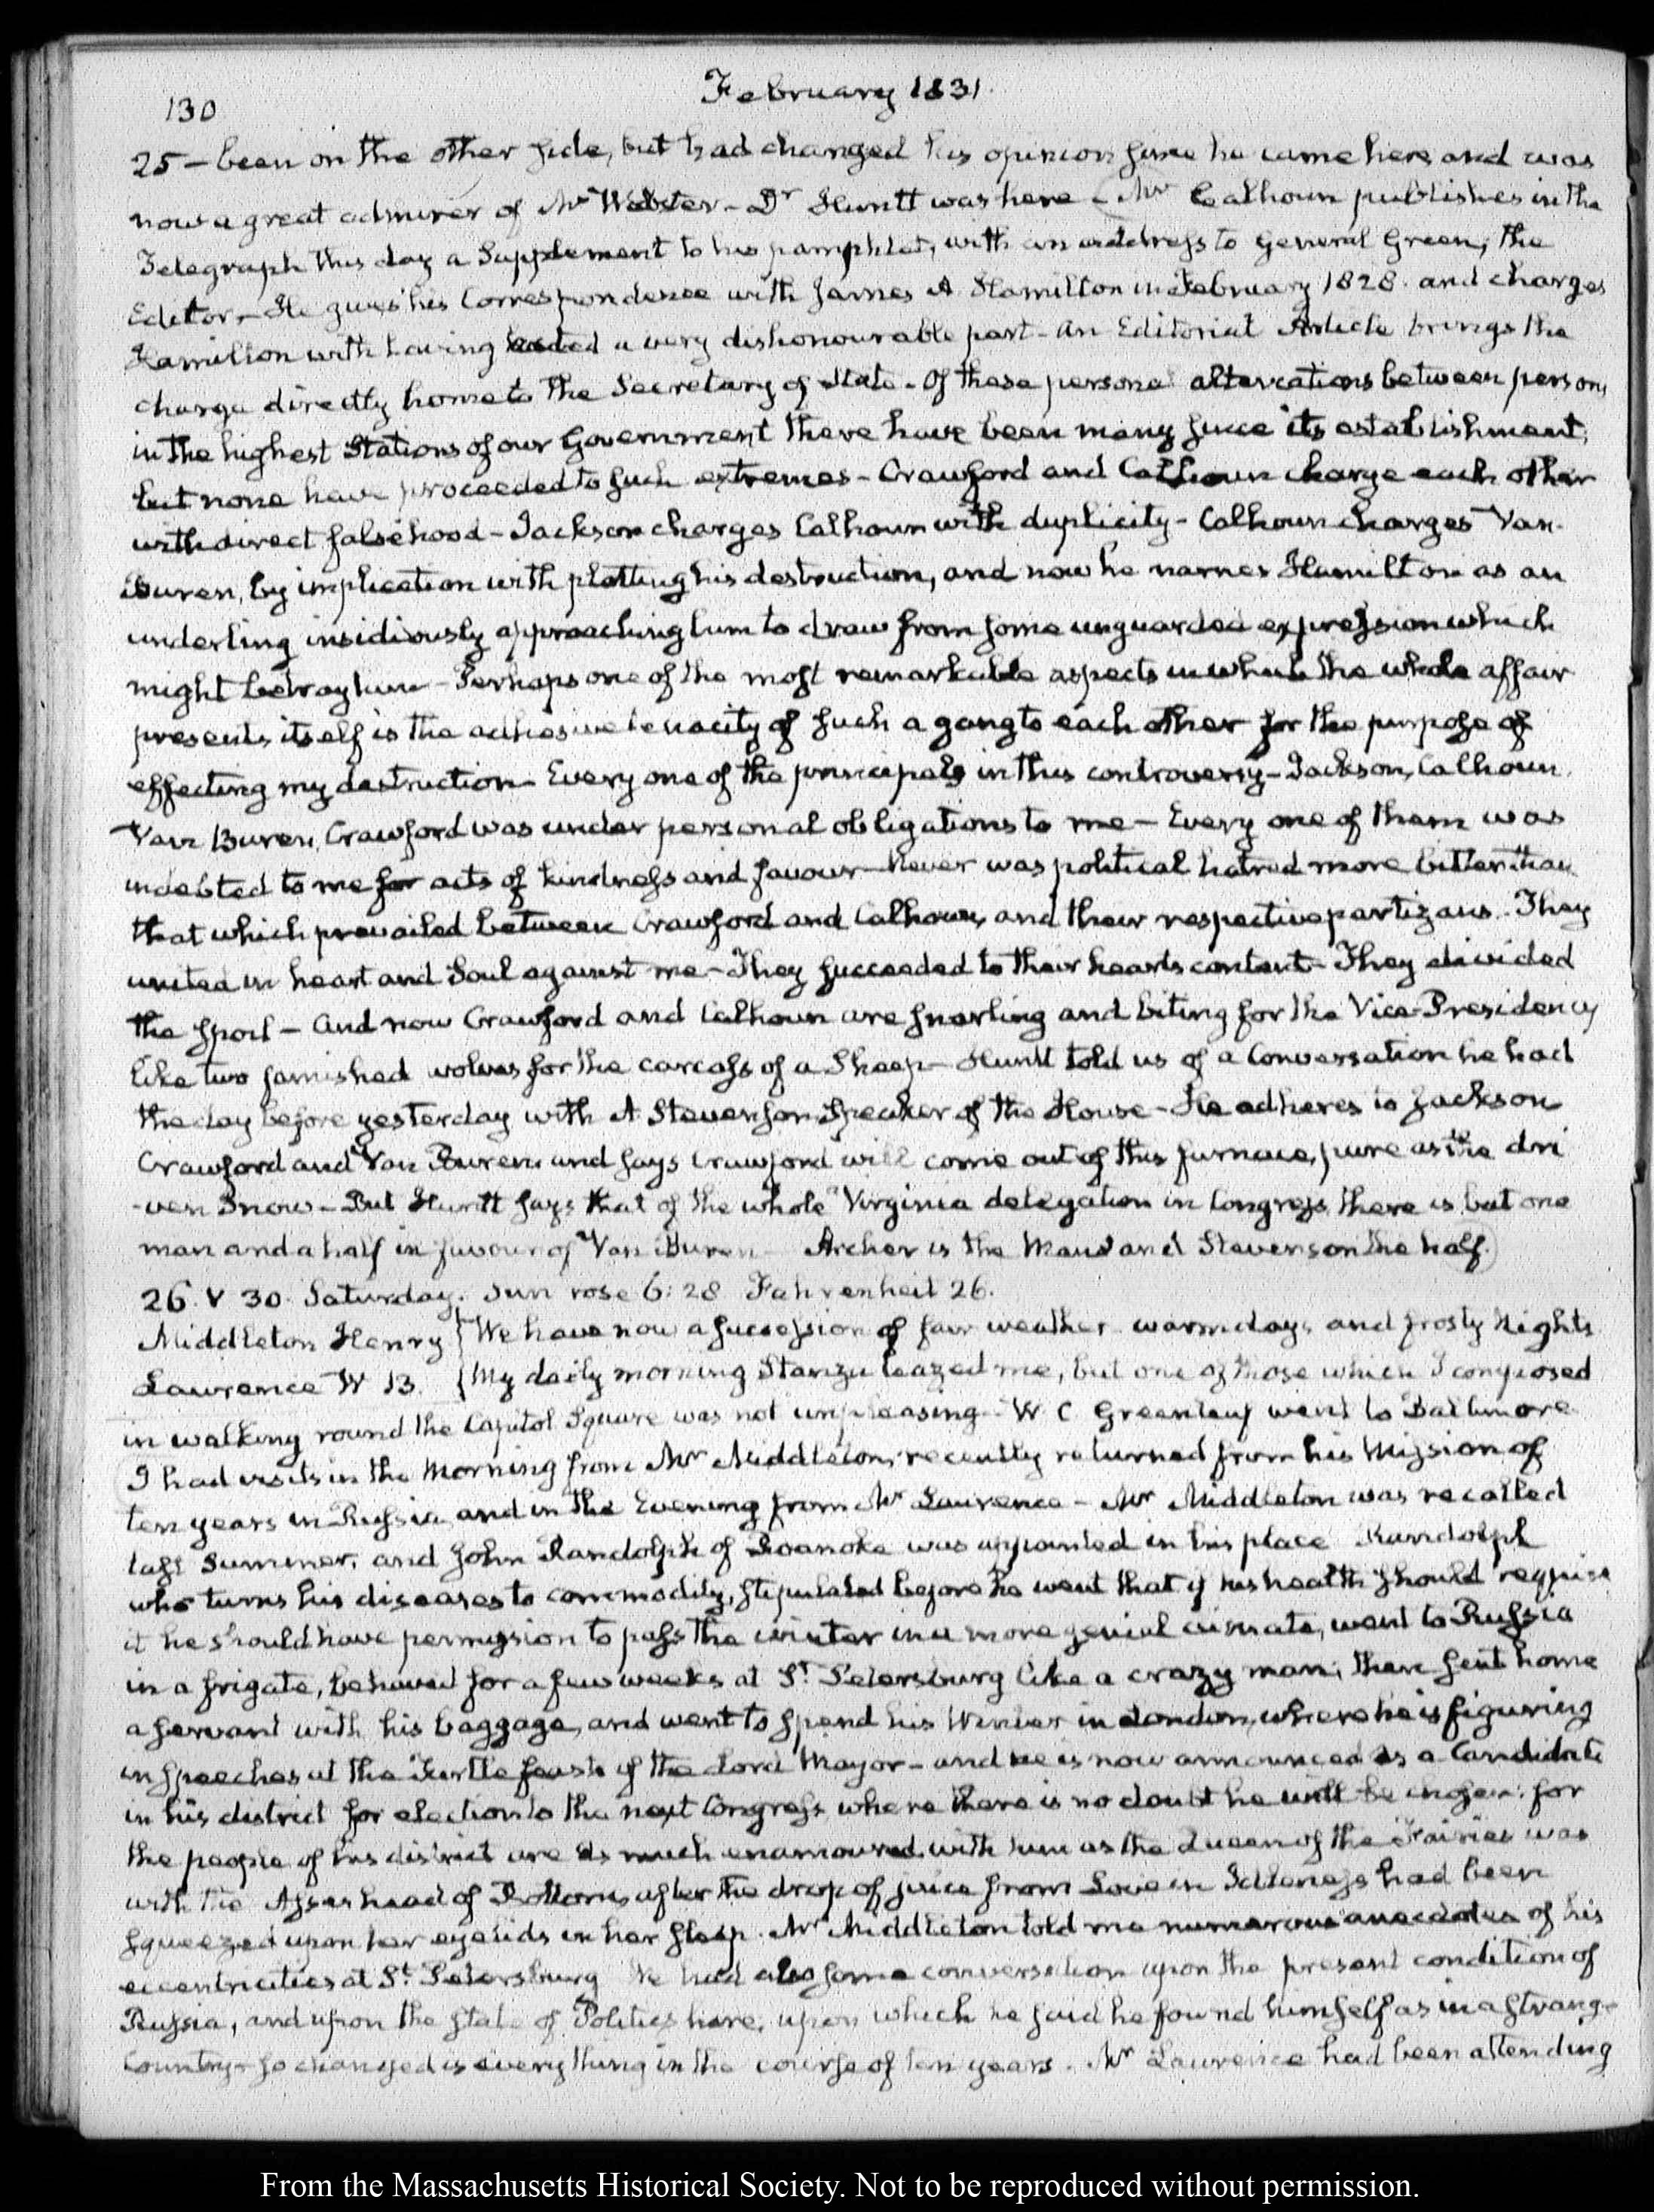 130
February 1831.
25 — been on the other side, but had changed his opinion since he came here and was
now a great admirer of Mr Webster – Dr Huntt was here – (Mr Calhoun publishes in the
Telegraph this day a Supplement to his pamphlet, with an address to General Green, the
Editor – He gives his Correspondence with James A Hamilton in February 1828. and charges
Hamilton with having acted a very dishonourable part – An Editorial Article brings the
charge directly home to the Secretary of State – Of these personal altercations between persons
in the highest Stations of our Government there have been many since its establishment;
but none have proceeded to such extremes – Crawford and Calhoun charge each other
with direct falsehood – Jackson charges Calhoun with duplicity – Calhoun charges Van-
Buren, by implication with plotting his destruction, and now he names Hamilton as an
underling insidiously approaching him to draw from some unguarded expression which
might betray him – Perhaps one of the most remarkable aspects in which the whole affair
presents itself is the adhesive tenacity of such a gang to each other for the purpose of
effecting my destruction – Every one of the principals in this controversy – Jackson, Calhoun,
Van Buren, Crawford was under personal obligations to me – Every one of them was
indebted to me for acts of kindness and favour – Never was political hatred more bitter than
that which prevailed between Crawford and Calhoun, and their respective partizans. They
united in heart and Soul against me – They succeeded to their hearts content – They divided
the spoil – And now Crawford and Calhoun are snarling and biting for the Vice-Presidency
like two famished wolves for the carcass of a Sheep – Huntt told us of a Conversation he had
the day before yesterday with A Stevenson Speaker of the House – He adheres to Jackson
Crawford and Van Buren and says Crawford will come out of this furnace, pure as the dri
-ven Snow – But Huntt says that of the whole Virginia delegation in Congress there is but one
man and a half in favour of Van Buren – Archer is the Man and Stevenson the half.)
26. V 30. Saturday. Sun rose 6:28 Fahrenheit 26.
Middleton Henry { We have now a succession of fair weather. warm days and frosty Nights
Lawrence W B. { My daily morning Stanza teazed me, but one of those which I composed
in walking round the Capitol Square was not unpleasing – W. C Greenleaf went to Baltimore
I had visits in the Morning from Mr Middleton, recently returned from his Mission of
ten years in Russia, and in the Evening from Mr Lawrence – Mr Middleton was recalled
last Summer, and John Randolph of Roanoke was appointed in his place Randolph
who turns his diseases to commodity, stipulated before he went that if his health should require
it he should have permission to pass the winter in a more genial climate, went to Russia
in a frigate, behaved for a few weeks at St. Petersburg like a crazy man; then sent home
a servant with his baggage, and went to spend his Winter in London, where he is figuring
in speeches at the Turtle feasts of the Lord Mayor – and he is now announced as a Candidate
in his district for election to the next Congress where there is no doubt he will be chosen: for
the people of his district are as much enamoured with him as the Queen of the Fairies was
with the Asses head of Bottom, after the drop of juice from Love in Idleness had been
squeezed upon her eyelids in her sleep. Mr Middleton told me numerous anecdotes of his
eccentricities at St. Petersburg We had also some conversation upon the present condition of
Russia, and upon the state of Politics here, upon which he said he found himself as in a strange
Country – so changed is every thing in the course of ten years. Mr Lawrence had been attending
From the Massachusetts Historical Society. Not to be reproduced without permission.